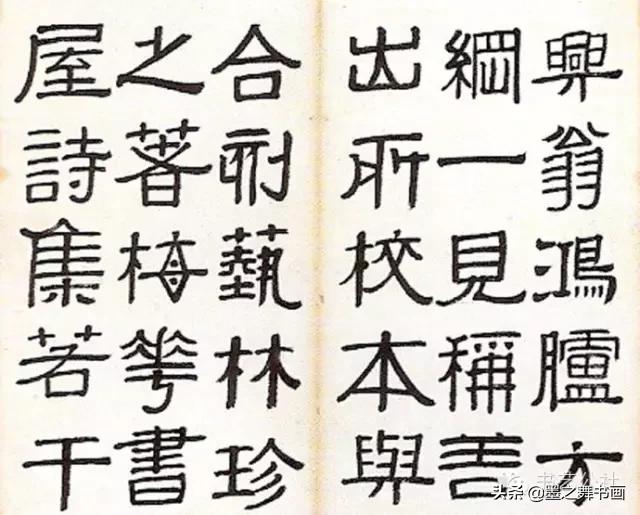 興翁鴻臚方
綱一見稱善
出所校本與
合藝林珍
之著梅華書
屋詩集若干
书艺公社
头条 @墨之舞书画